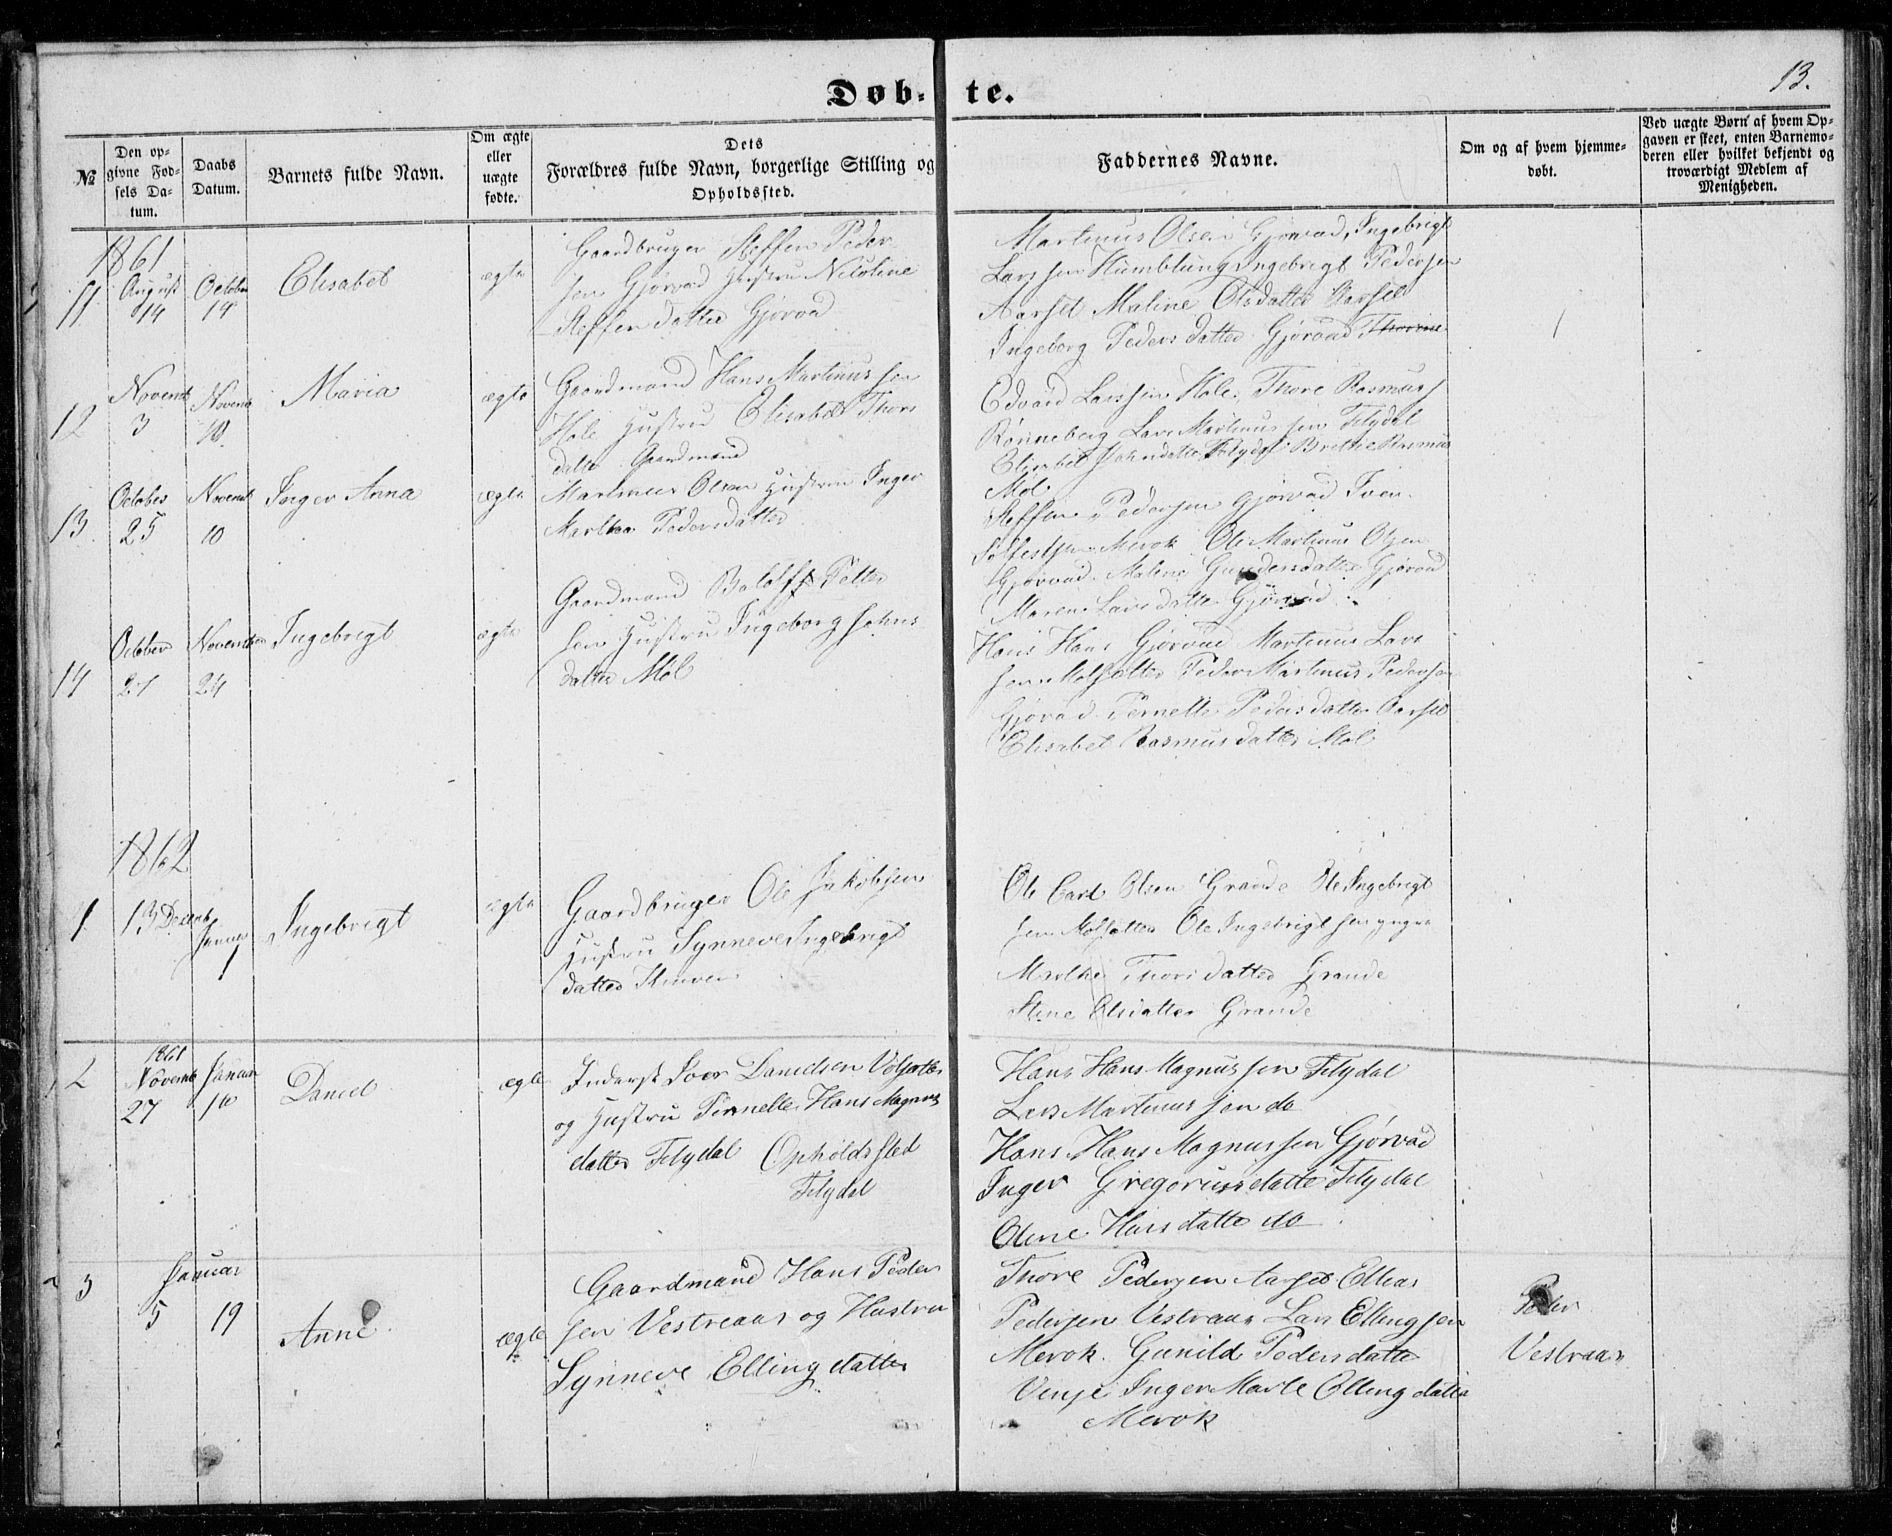 13.
Døb- te.
№
Den op-
givne Fød-
sels Da-
tum.
Daabs
Datum.
Barnets fulde Navn.
Om ægte
eller
uægte
fødte.
Dets
Forældres fulde Navn, borgerlige Stilling og
Opholdssted.
Faddernes Navne.
Om og af hvem hjemme-
døbt.
Ved uægte Børn af hvem Op-
gaven er skeet, enten Barnemo-
deren eller hvilket bekjendt og
troværdigt Medlem af
Menigheden.
1861
11 August 14 October 14 Elisabet ægte
Gaardbruger Steffen Peder
sen Gjørvad Hustru Nicoline
Steffendatter Gjørvad
Martinus Olsen Gjørvad, Ingebrigt
Larssen Humblung Ingebrigt Pedersen
Aarset Maline Olsdatter Aarset
Ingeborg Pedersdatter Gjørvad
12 Novemb 3 Novemb 10 Maria ægte
Gaardmand Hans Martinussen
Hole Hustru Elisabet Thors
datter
Edvard Larssen Hole, Thore Rasmuss
Rønneberg Lars Martinussen Flydal
Elisabet Johnsdatter Brithe Rasmus
Møl
13 October 25 Novemb 10 Inger Anna ægte
Gaardmand
Martinus Olsen Hustru Inger
Marthe Pedersdatter
Steffen Pedersen Gjørvad Iver
Merok Ole Martinus Olsen
Gjørvad. Maline Gundersdatter Gjørvad
Maren Larsdatter Gjørvad
14 October 27 November 24 Ingebrigt ægte
Gaardmand Petter
sen Hustru Ingeborg Johns
datter Møl
Hans Hans Gjørvad Martinus Lars
sen Møl Peder Martinus Pedersen
Gjørvad. Pernelle Pedersdatter Aarset
Elisabet Rasmusdatter Møl
1862
1 13 Decemb Januar 1 Ingebrigt ægte
Gaardbruger Ole Jakobsen
Hustru Synneve Ingebrigt
datter
Ole Carl Olsen Grande Ole Ingebrigt
sen Ole Ingebrigtsen yngre
Marthe Thorsdatter Grande
Stine Olsdatter Grande
2 1861 Novemb 27 Januar Daniel ægte
Inderst Iver Danielsen
og Hustru Pernelle Hans Magnus
datter Flydal Opholdssted
Flydal
Hans Hans Magnussen Flydal
Lars Martinussen do
Hans Hans Magnussen Gjørvad
Inger Gregoriusdatter Flydal
Oline Hansdatter do
3 Januar 5 19 Anne ægte
Gaardmand Hans Peder
sen Vestreaas og Hustru
Synneve Ellingsdatter
Thore Pedersen Aarset Elias
Pedersen Vestraas Lars Ellingsen
Merok. Gunild Pedersdatter
Vinje Inger Marte Ellingsdatter
Merok
Peder
Vestraas